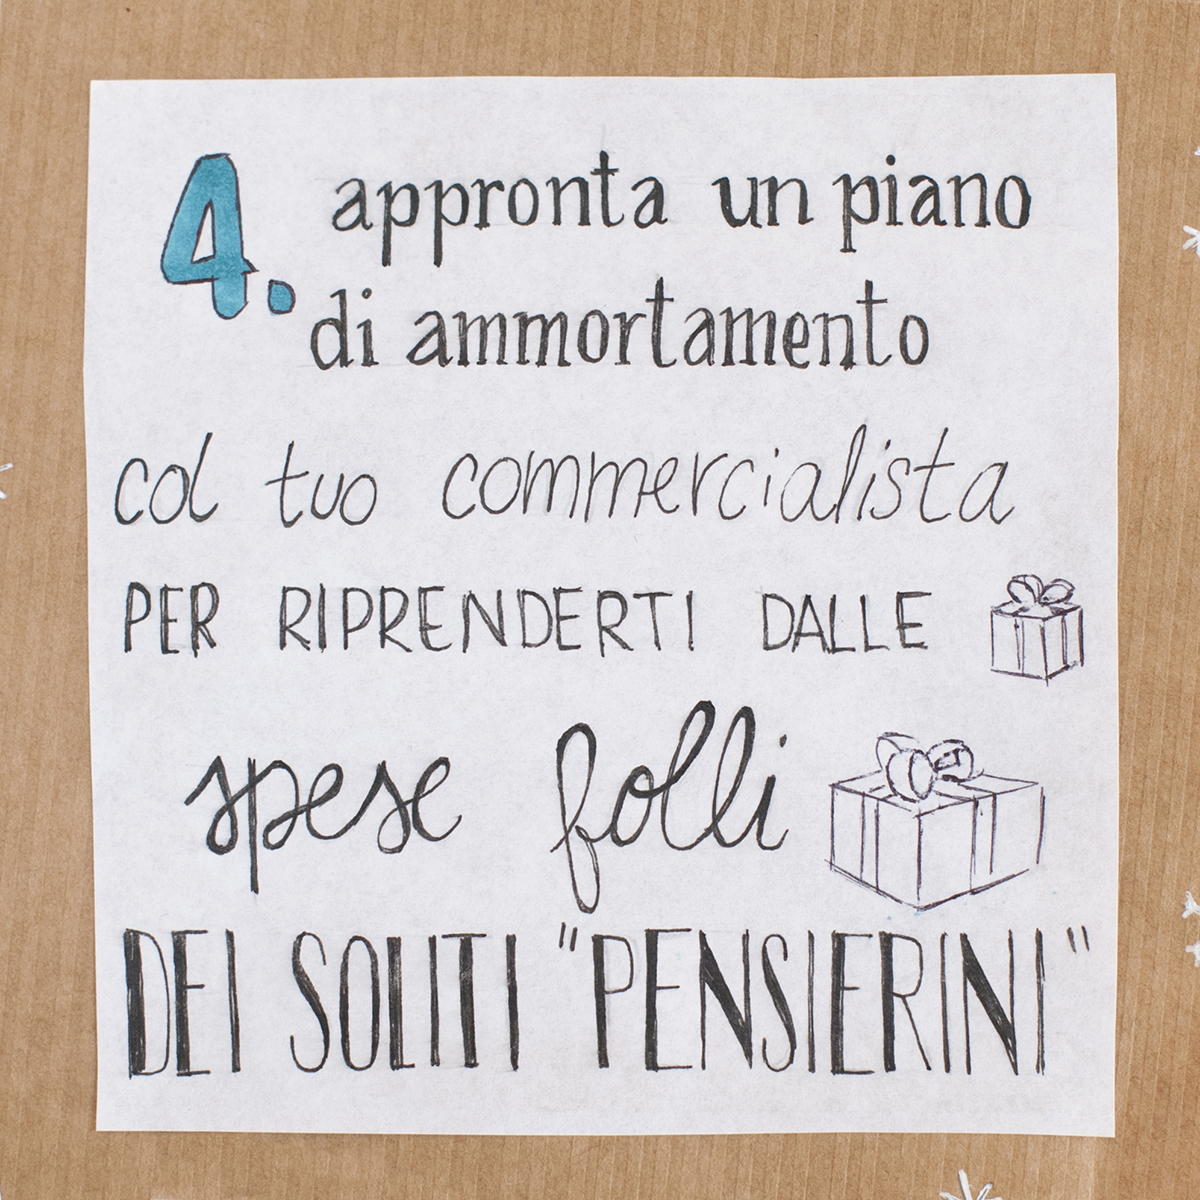 4. appronta un piano
di ammortamento
col tuo commercialista
PER RIPRENDERTI DALLE
spese folli
DEI SOLITI "PENSIERINI"